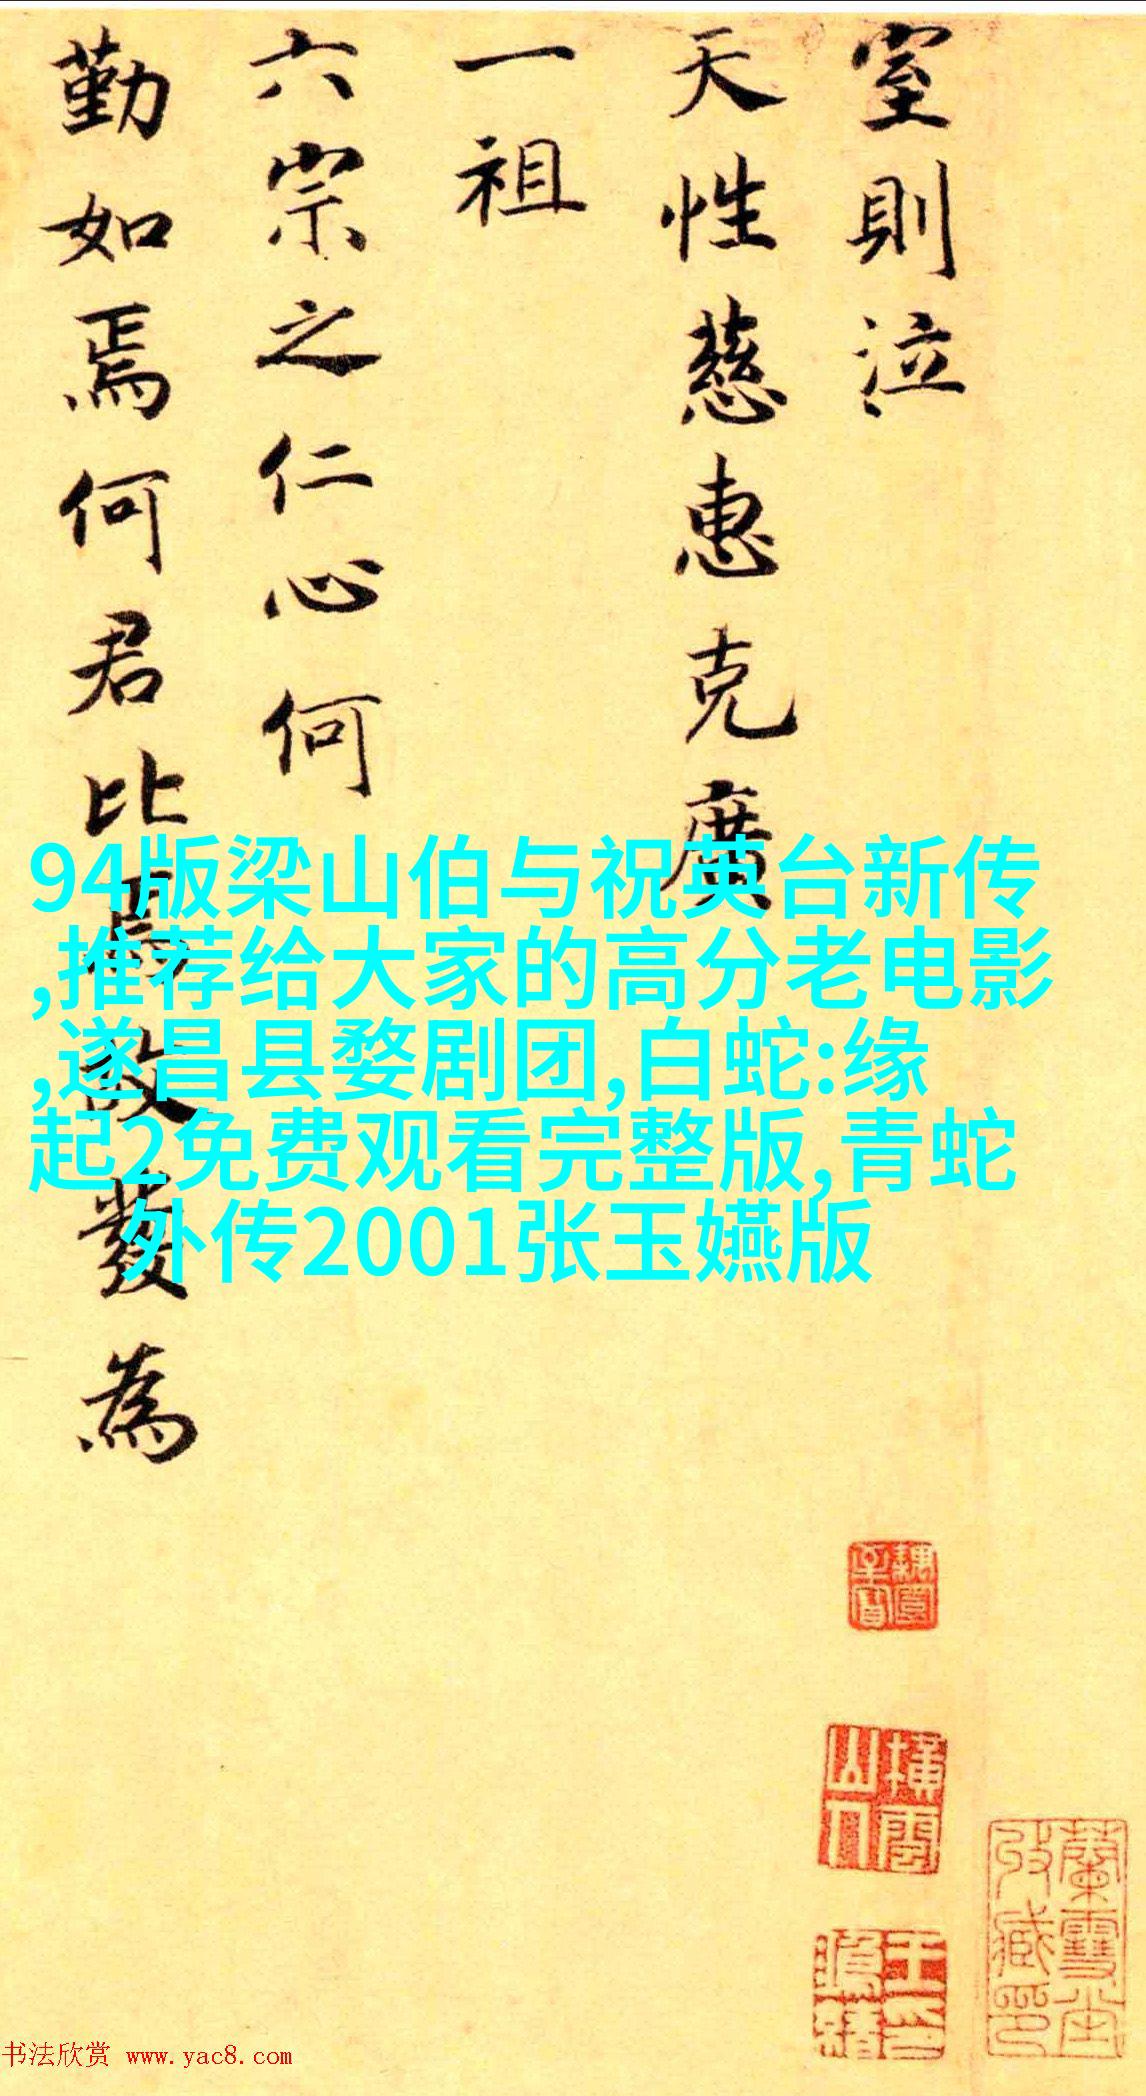 室則泣
天性慈惠克廣
一祖
六宗之仁心何
勤如焉何君比焉故發為
94版梁山伯与祝英台新传
,推荐给大家的高分老电影
,遂昌县婺剧团,白蛇:缘
起2免费观看完整版,青蛇
外传2001张玉嬿版
横雲山人
蘭雪堂收藏印
书法欣赏 www.yac8.com